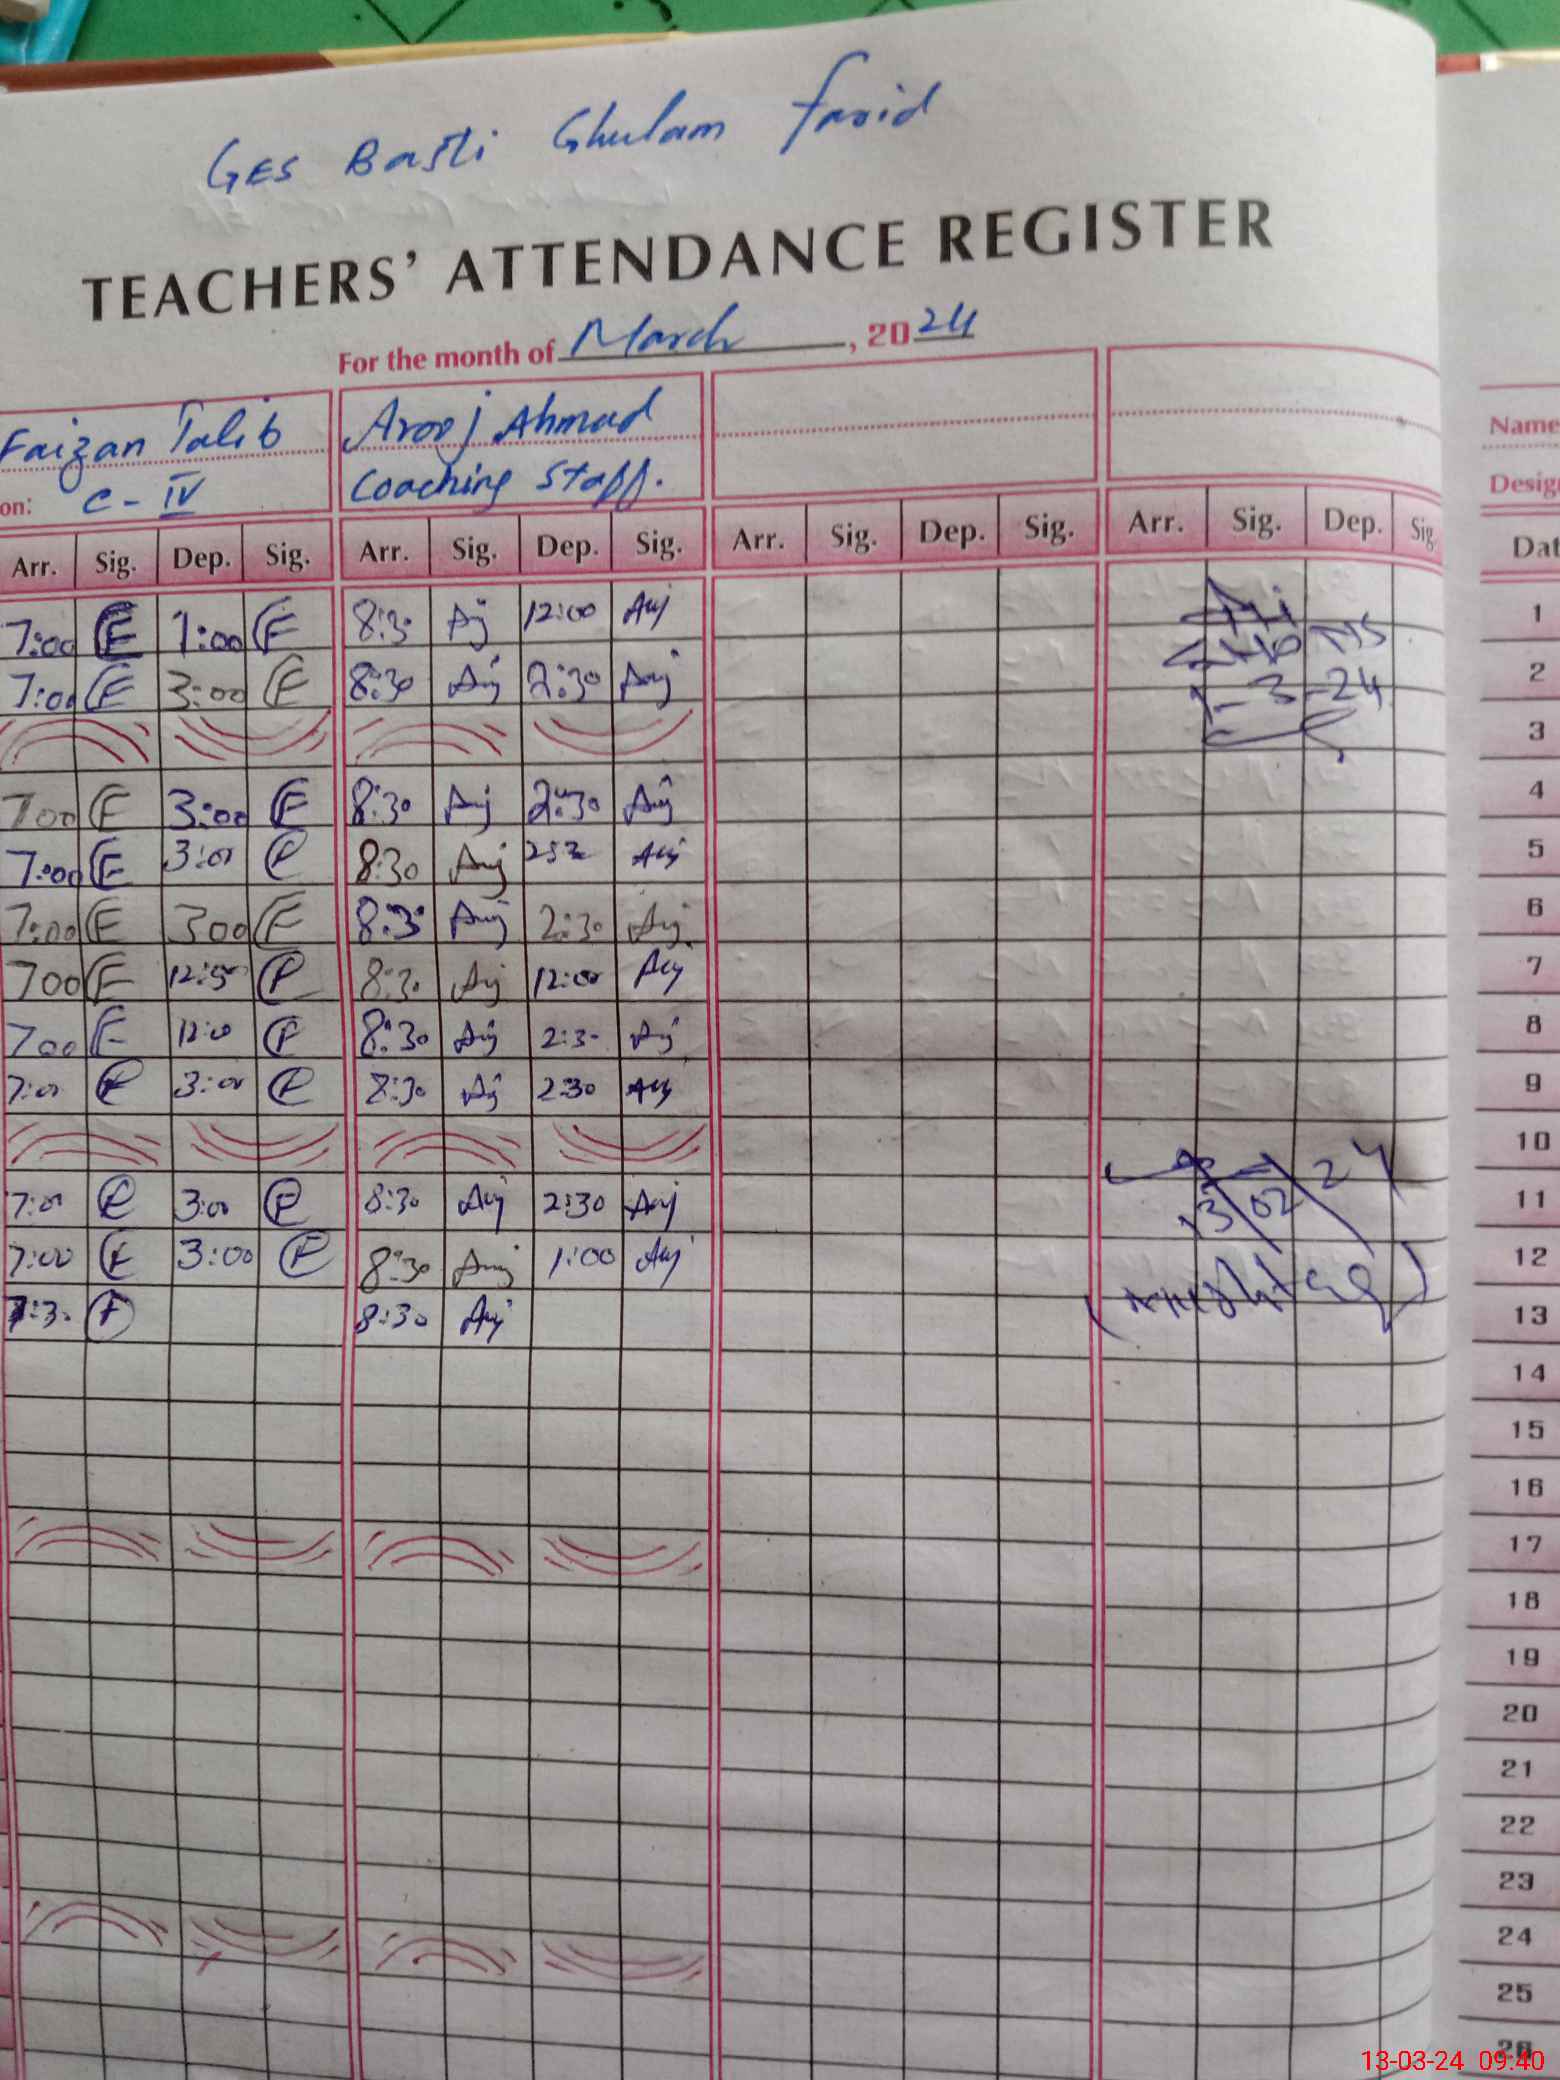 GES Basti Ghulam Farid
TEACHERS' ATTENDANCE REGISTER
For the month of March, 2024
Faizan Talib Arooj Ahmad
on: C-IV Coaching Staff.
Name
Desig
Arr. Sig. Dep. Sig. Arr. Sig. Dep. Sig. Arr. Sig. Dep. Sig. Arr. Sig. Dep. Sig. Dat
7:00 F 1:00 F 8:30 Auj 12:00 Auj 1
7:00 F 3:00 F 8:30 Auj 2:30 Auj 2
1-3-24
3
700 F 3:00 F 8:30 Auj 2:30 Auj 4
7:00 F 3:00 F 8:30 Auj 5
7:00 F 300 F 8:30 Auj 2:30 Auj 6
700 F F 8:30 Auj 12:00 Auj 7
700 F 12:00 F 8:30 Auj 2:30 Auj 8
7:00 F 3:00 F 8:30 Auj 2:30 Auj 9
10
7:00 F 3:00 F 8:30 Auj 2:30 Auj 11
13/02/24
7:00 F 3:00 F 8:30 Auj 1:00 Auj 12
7:30 F 8:30 Auj 13
14
15
16
17
18
19
20
21
22
23
24
25
26
13-03-24 09:40